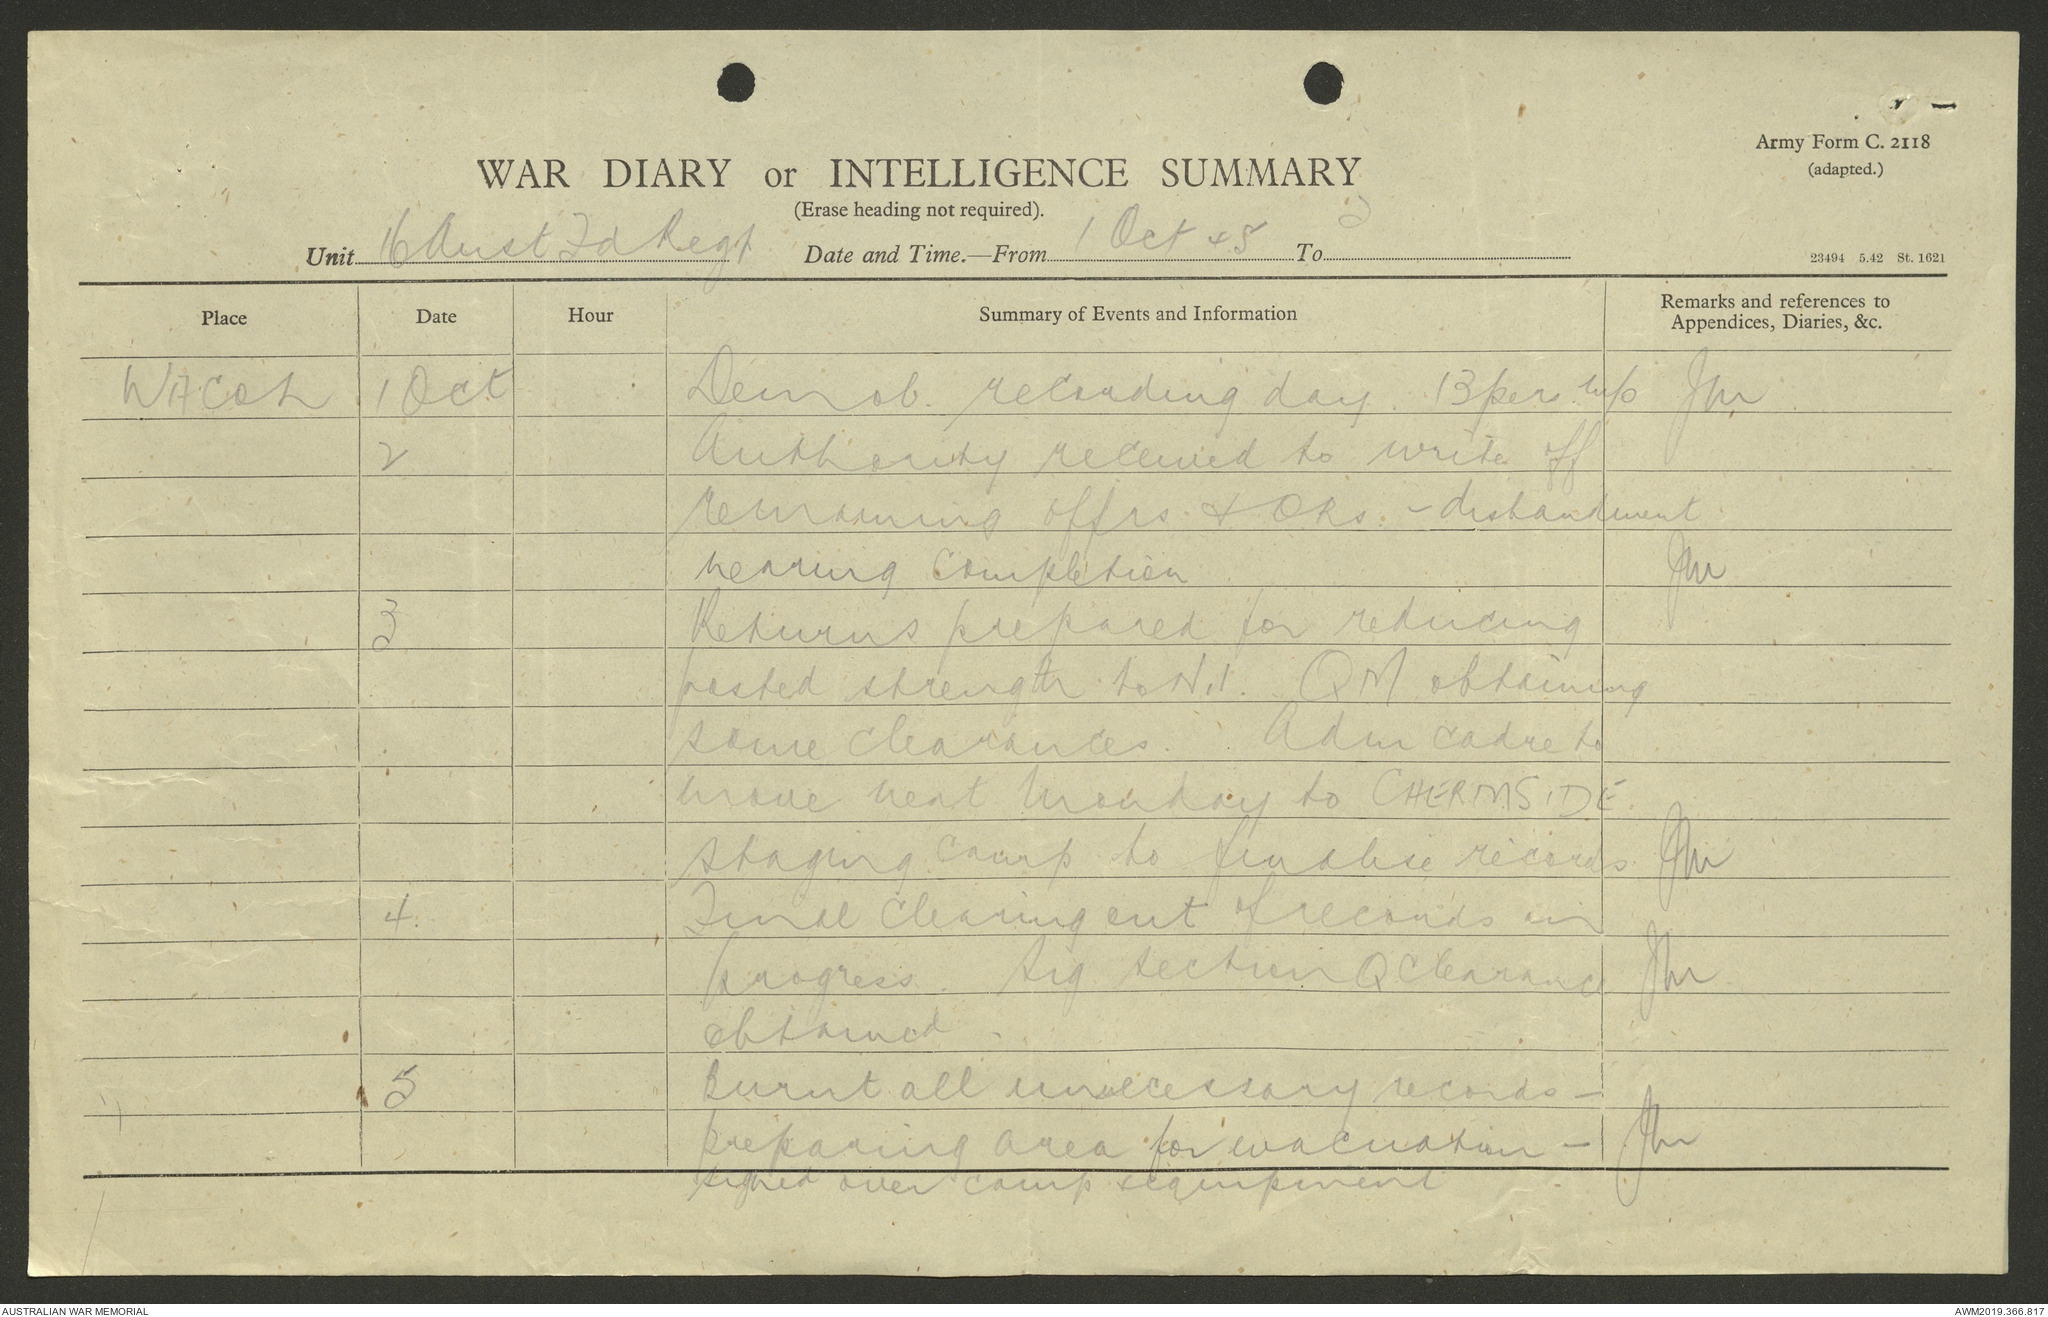 Army Form C. 2118
(adapted.)
WAR DIARY or INTELLIGENCE SUMMARY
(Erase heading not required).
Unit 16 Aust Fd Regt Date and Time.—From 1 Oct 45 To
23494 5.42 St. 1621
Place Date Hour Summary of Events and Information Remarks and references to
Appendices, Diaries, &c.
WACOL 1 Oct Demob. recording day. 13 pers
2 Authority received to write off
remaining offrs & ORs - disbandment
nearing completion
3 Returns prepared for reducing
posted strength to Nil. QM obtaining
some clearances. Adm cadre to
move next Monday to CHERMSIDE
staging camp to finalise records
4. Final clearing out of records in
progress. Sig section Q Clearance
obtained.
5 Burnt all unnecessary records -
preparing area for evacuation -
signed over camp equipment
AUSTRALIAN WAR MEMORIAL
AWM2019.366.817